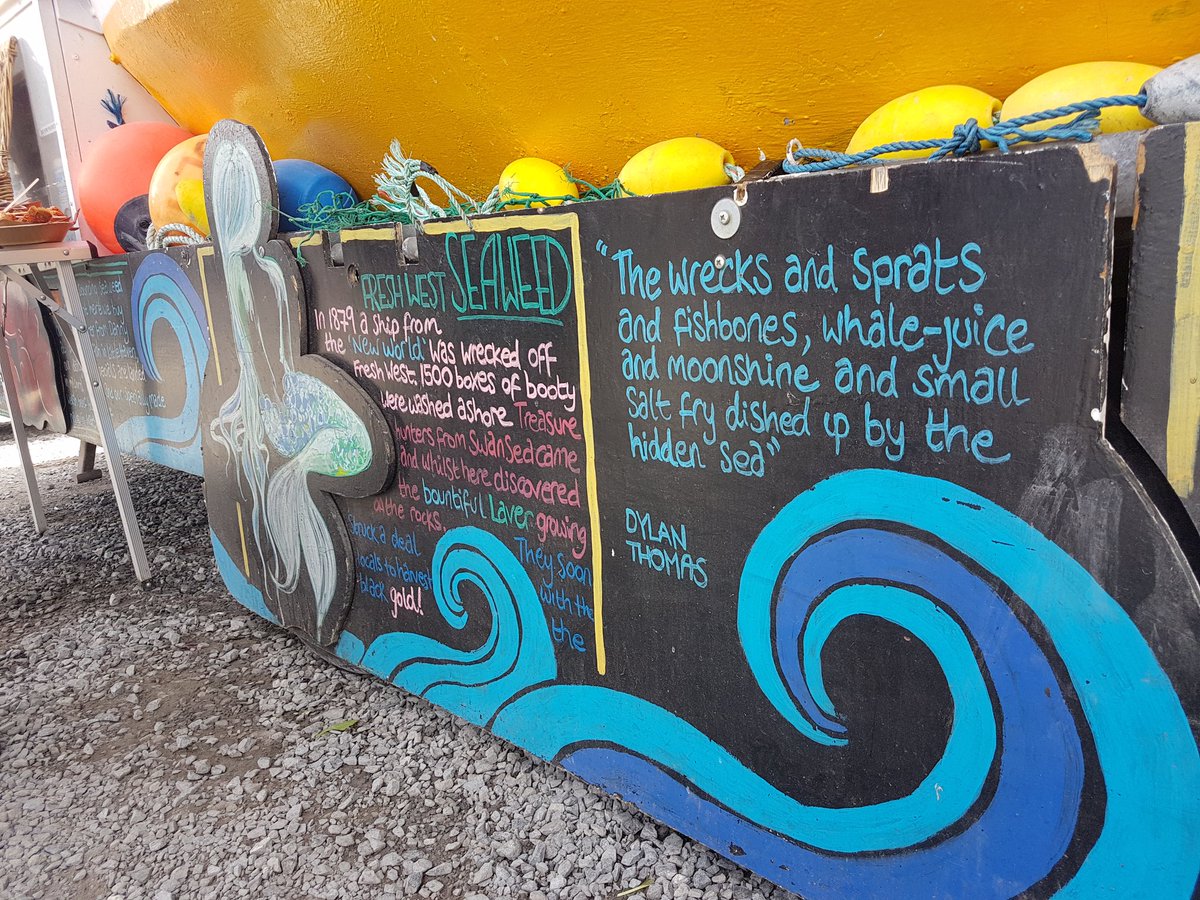 FRESH WEST SEAWEED
In 1879 a ship from
the 'New World' was wrecked off
Fresh West. 1500 boxes of booty
were washed ashore Treasure
hunters from Swansea came
and whilst here discovered
the bountiful Laver growing
on the rocks.
They soon
struck a deal with the
locals to harvest the
black gold!
"The wrecks and sprats
and fishbones, whale-juice
and moonshine and small
salt fry dished up by the
hidden sea"
DYLAN
THOMAS